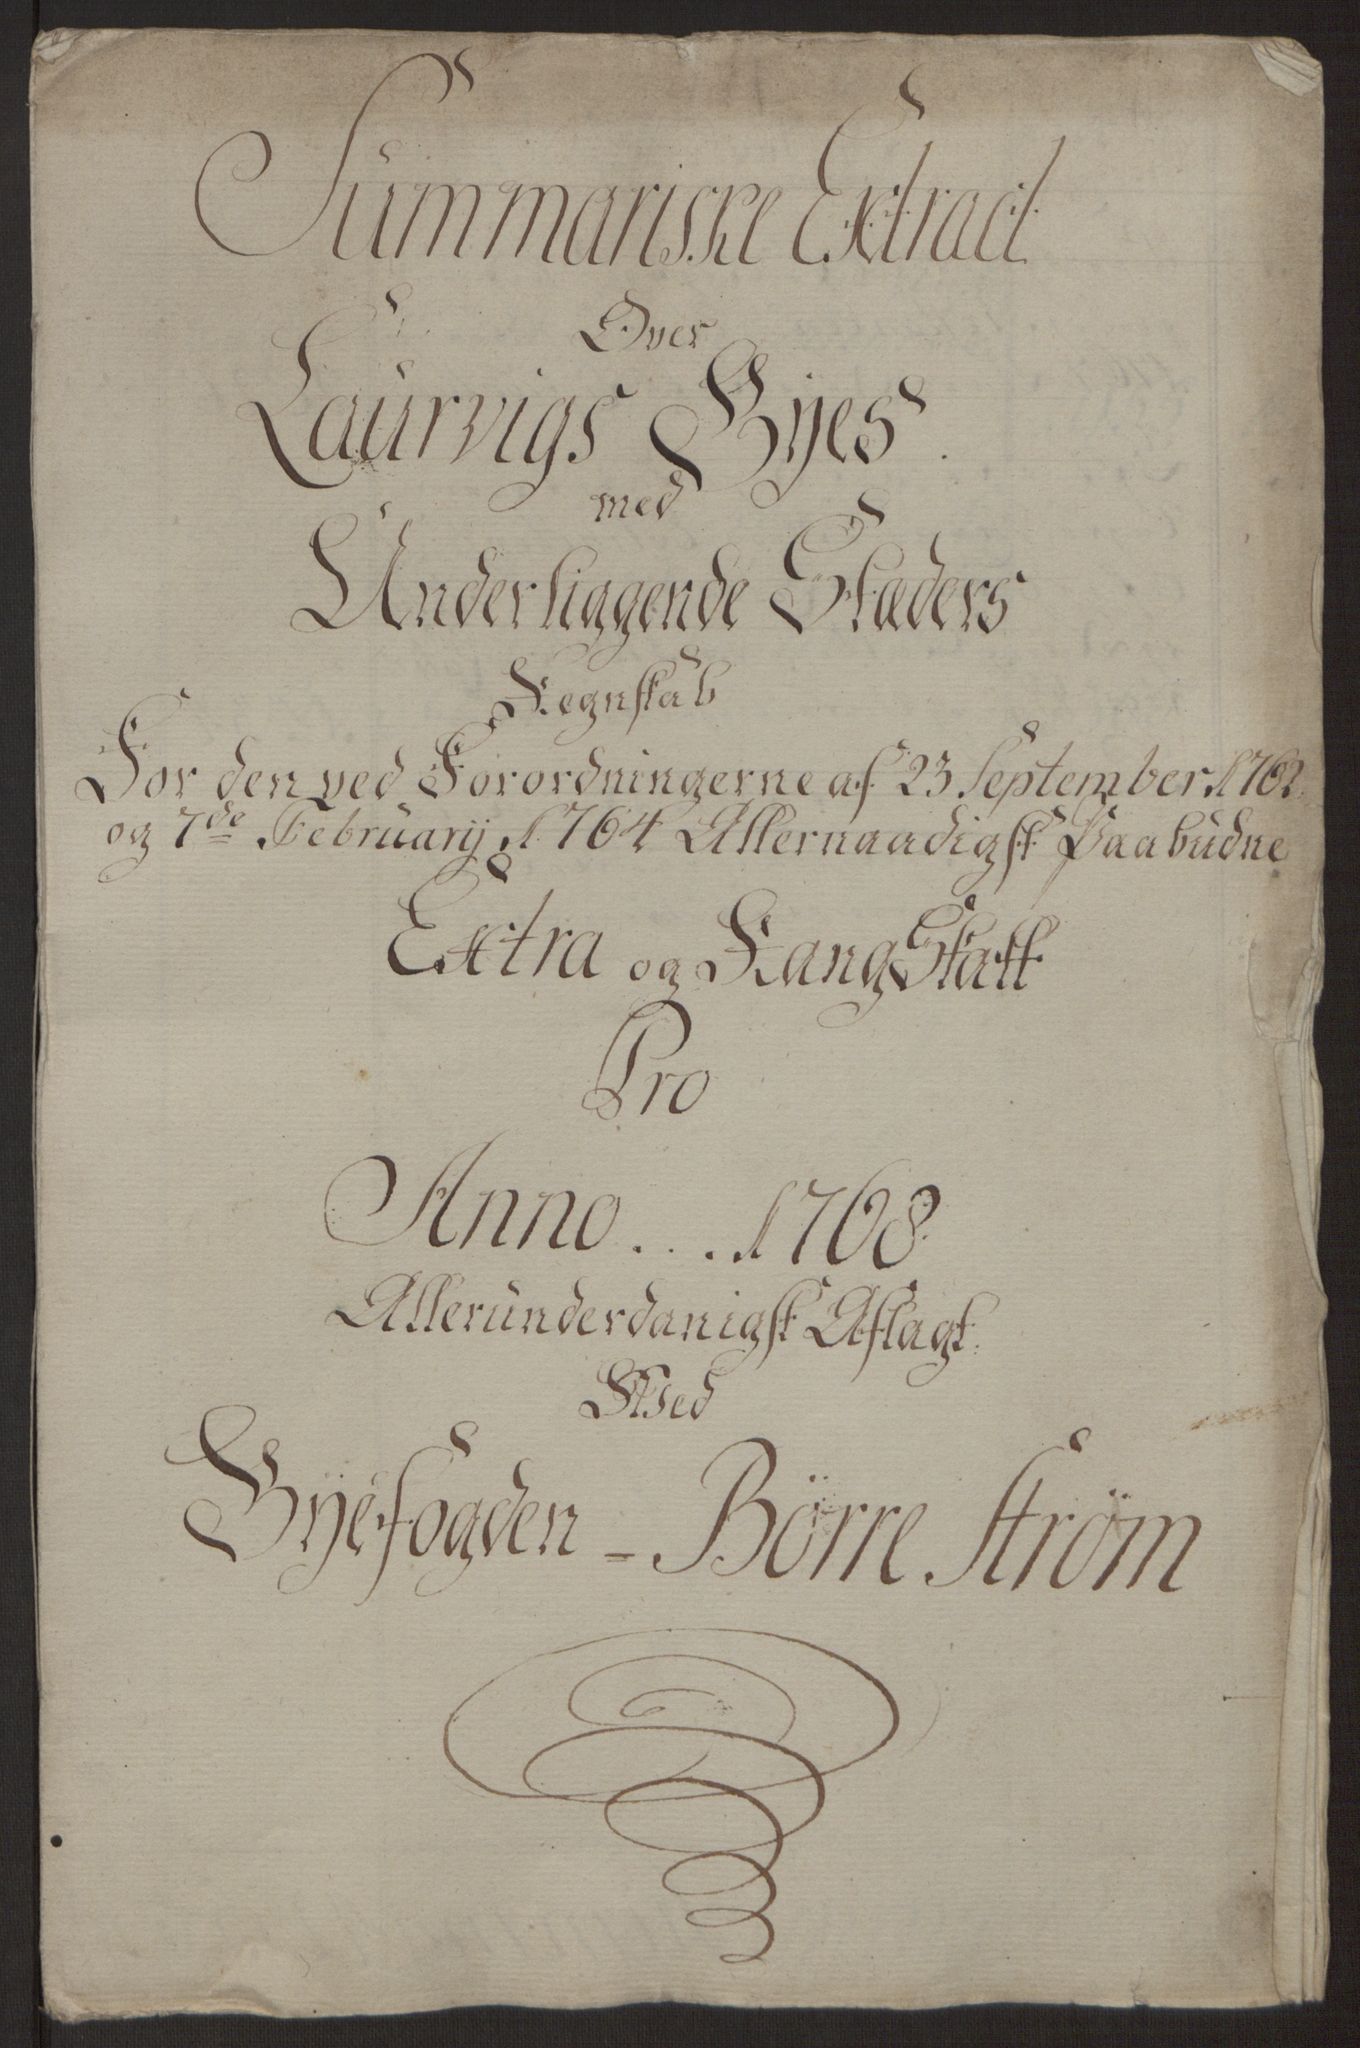 Summariske Extract
Over
Laurvigs Byes
med
Underliggende Stæders
Regnskab
For den ved Forordningerne af 23 September 1762
og 7de February 1764 Allernaadigst Paabudne
Extra og Rang Skatt
Pro
Anno . . . 1768
Allerunderdanigst Aflagt
Med
Byefogden - Börre Ström